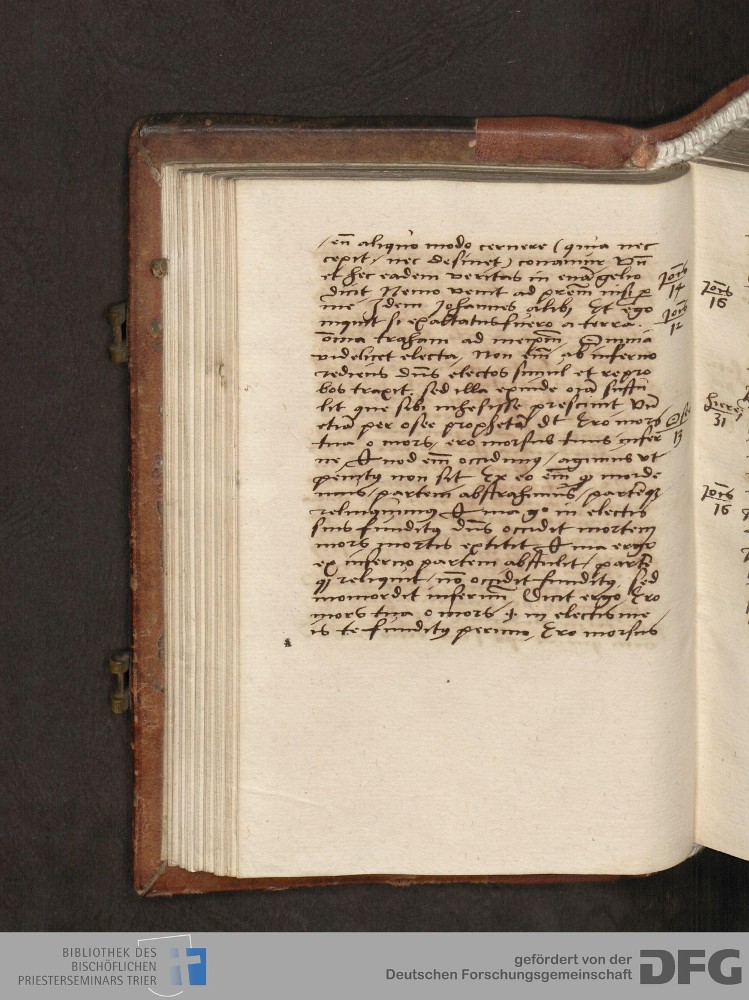 / en̄ aliquo modo cernere (quia nec
cepit, nec desinet) conamur Vn̄
et hec eadem veritas in euāgelio
dicit Nemo venit ad prēm nisi ꝑ
me Idem Johannes alibi Et ego
inquit si exaltatus fuero a terra.
oīnia traham ad meipm̄. Omnia
videlicet electa, Non eīn ab inferno
rediens dn̄s electos simul et repro
bos traxit, sed illa exinde oīa sustu
lit que sibi inhesisse presciuit Vn̄
etiā per osee prophetā dt Ero mors
tua o mors, ero morsus tuus infer
ne, Quod eīn occidimus, agimus vt
penitus non sit Ex eo eīn ꝙ morde
mus, partem abstrahimus, partēqꝫ
relinquimus Quia gͦ in electis
suis funditus dn̄s occidit mortem
mors mortis extitit Quia ergo
ex inferno partem abstulit, partē
qꝫ reliquit, nō occidit funditus, sed
momordit infernū, Dicit ergo, Ero
mors tua o mors .i. in electis me
is te funditus perimo, Ero morsus
Joīs
14
Joīs
12
Osee
13
Joīs
16
Hiere
31
Joīs
16
BIBLIOTHEK DES
BISCHÖFLICHEN
PRIESTERSEMINARS TRIER
gefördert von der
Deutschen Forschungsgemeinschaft
DFG